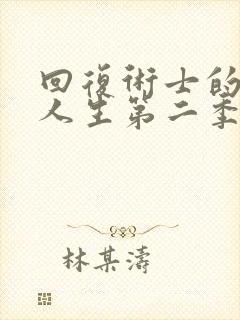 回復術士的
人生第二季
林某濤